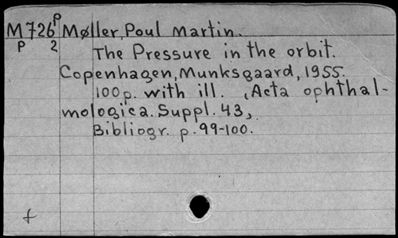 M726P Møller, Poul Martin.
P 2 The Pressure in the orbit.
Copenhagen, Munksgaard, 1955.
100p. with ill. (Acta ophthal-
mologica. Suppl. 43)
Bibliogr. p. 99-100.